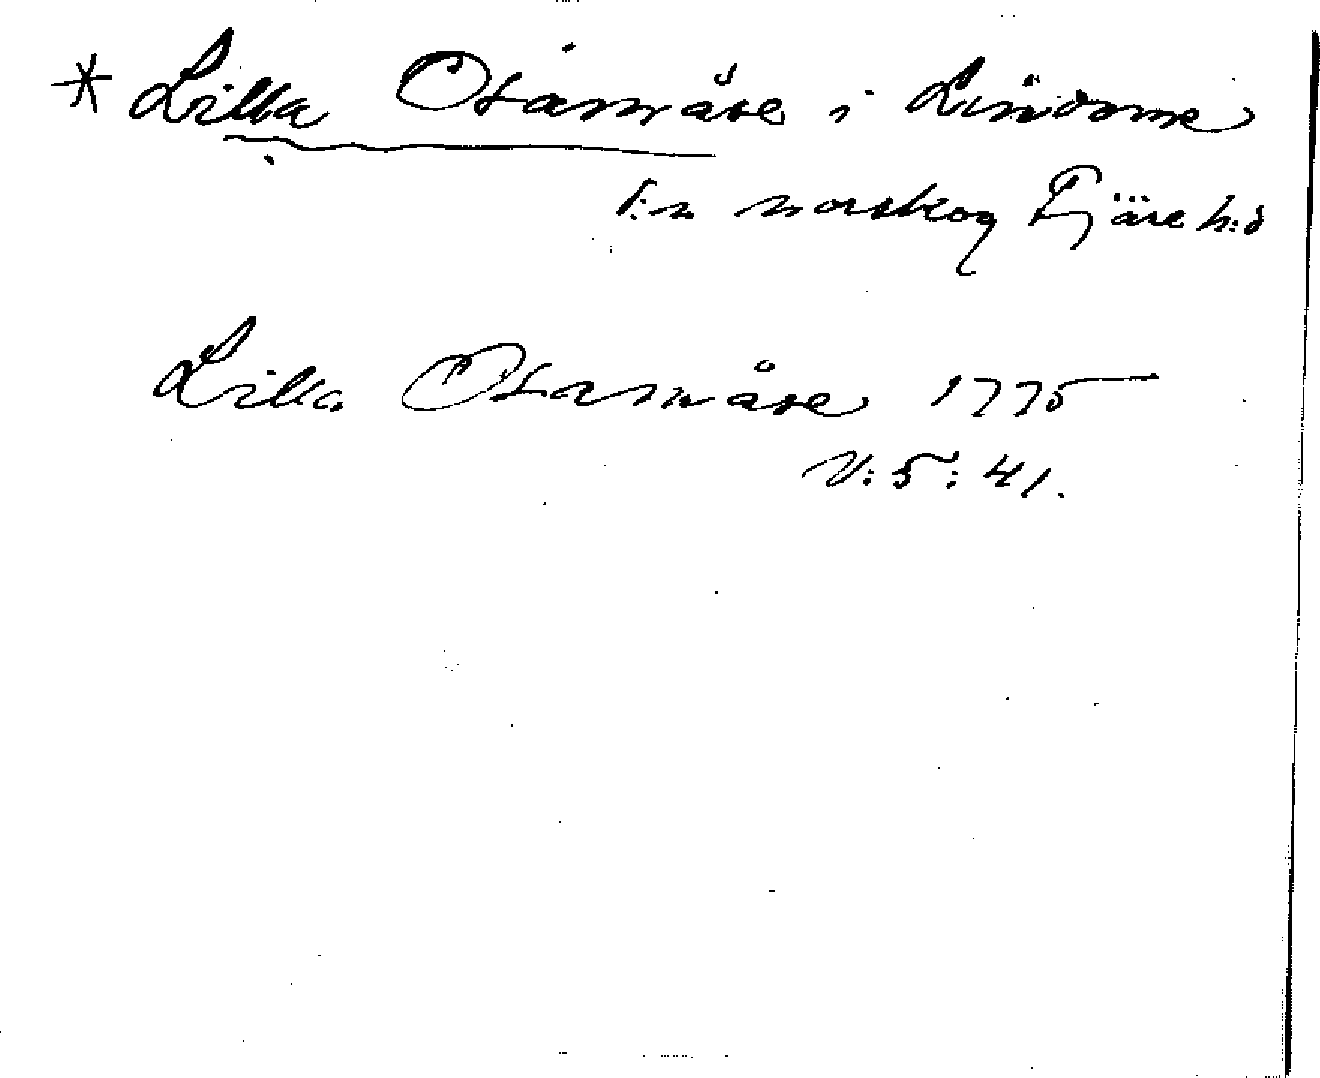 * Lilla Otasmåse i Lindome
s:n norskog Fjäre h:d
Lilla Otasmåse 1775
V:5:41.